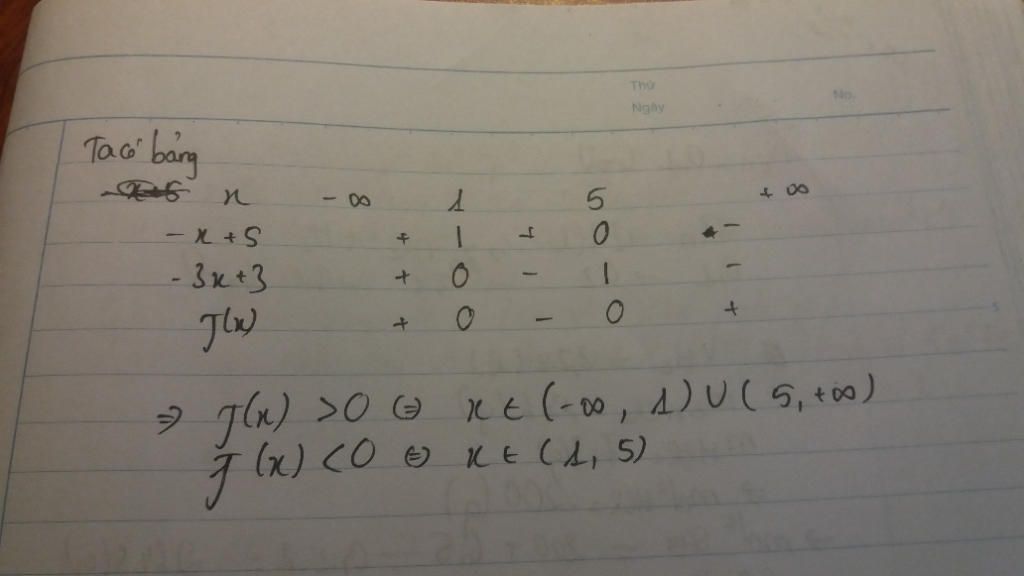 Thứ
Ngày
No.
Ta có bảng
x -∞ 1 5 +∞
-x+5 + | + 0 -
-3x+3 + 0 - | -
f(x) + 0 - 0 +
⇒ f(x) >0 ⇔ x ∈ (-∞, 1) ∪ (5, +∞)
f(x) <0 ⇔ x ∈ (1, 5)